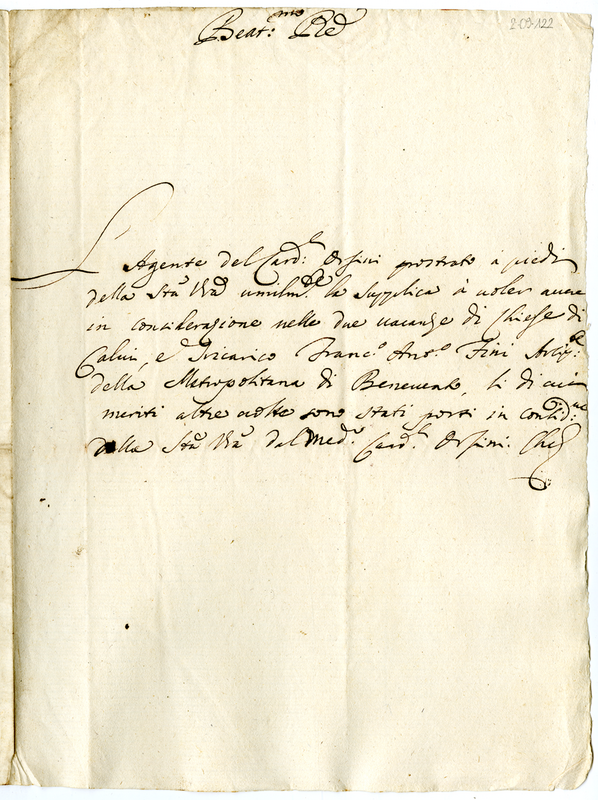 2-09-122
Beat:mo Pre
L
Agente del Card:l Orsini prostrato a piedi
della Stà Vrà umilmte la supplica à voler avere
in considerazione nelle due vacanze di Chiese di
Calvi, e Tricarico Franc.o Ant.o Fini Arcip:te
della Metropolitana di Benevento, li di cui
meriti altre volte sono stati posti in consid:ne
della Stà Vrà dal med.o Card:l Orsini. Che